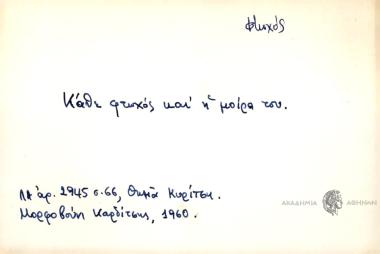 φτωχός
Κάθε φτωχός και' ἡ μοίρα του.
ΛΑ ἀρ. 2945 σ. 66, Θεμιᾶ Κυρίτση.
Μορφοβούνι Καρδίτσης, 1960.
ΑΚΑΔΗΜΙΑ ΑΘΗΝΩΝ